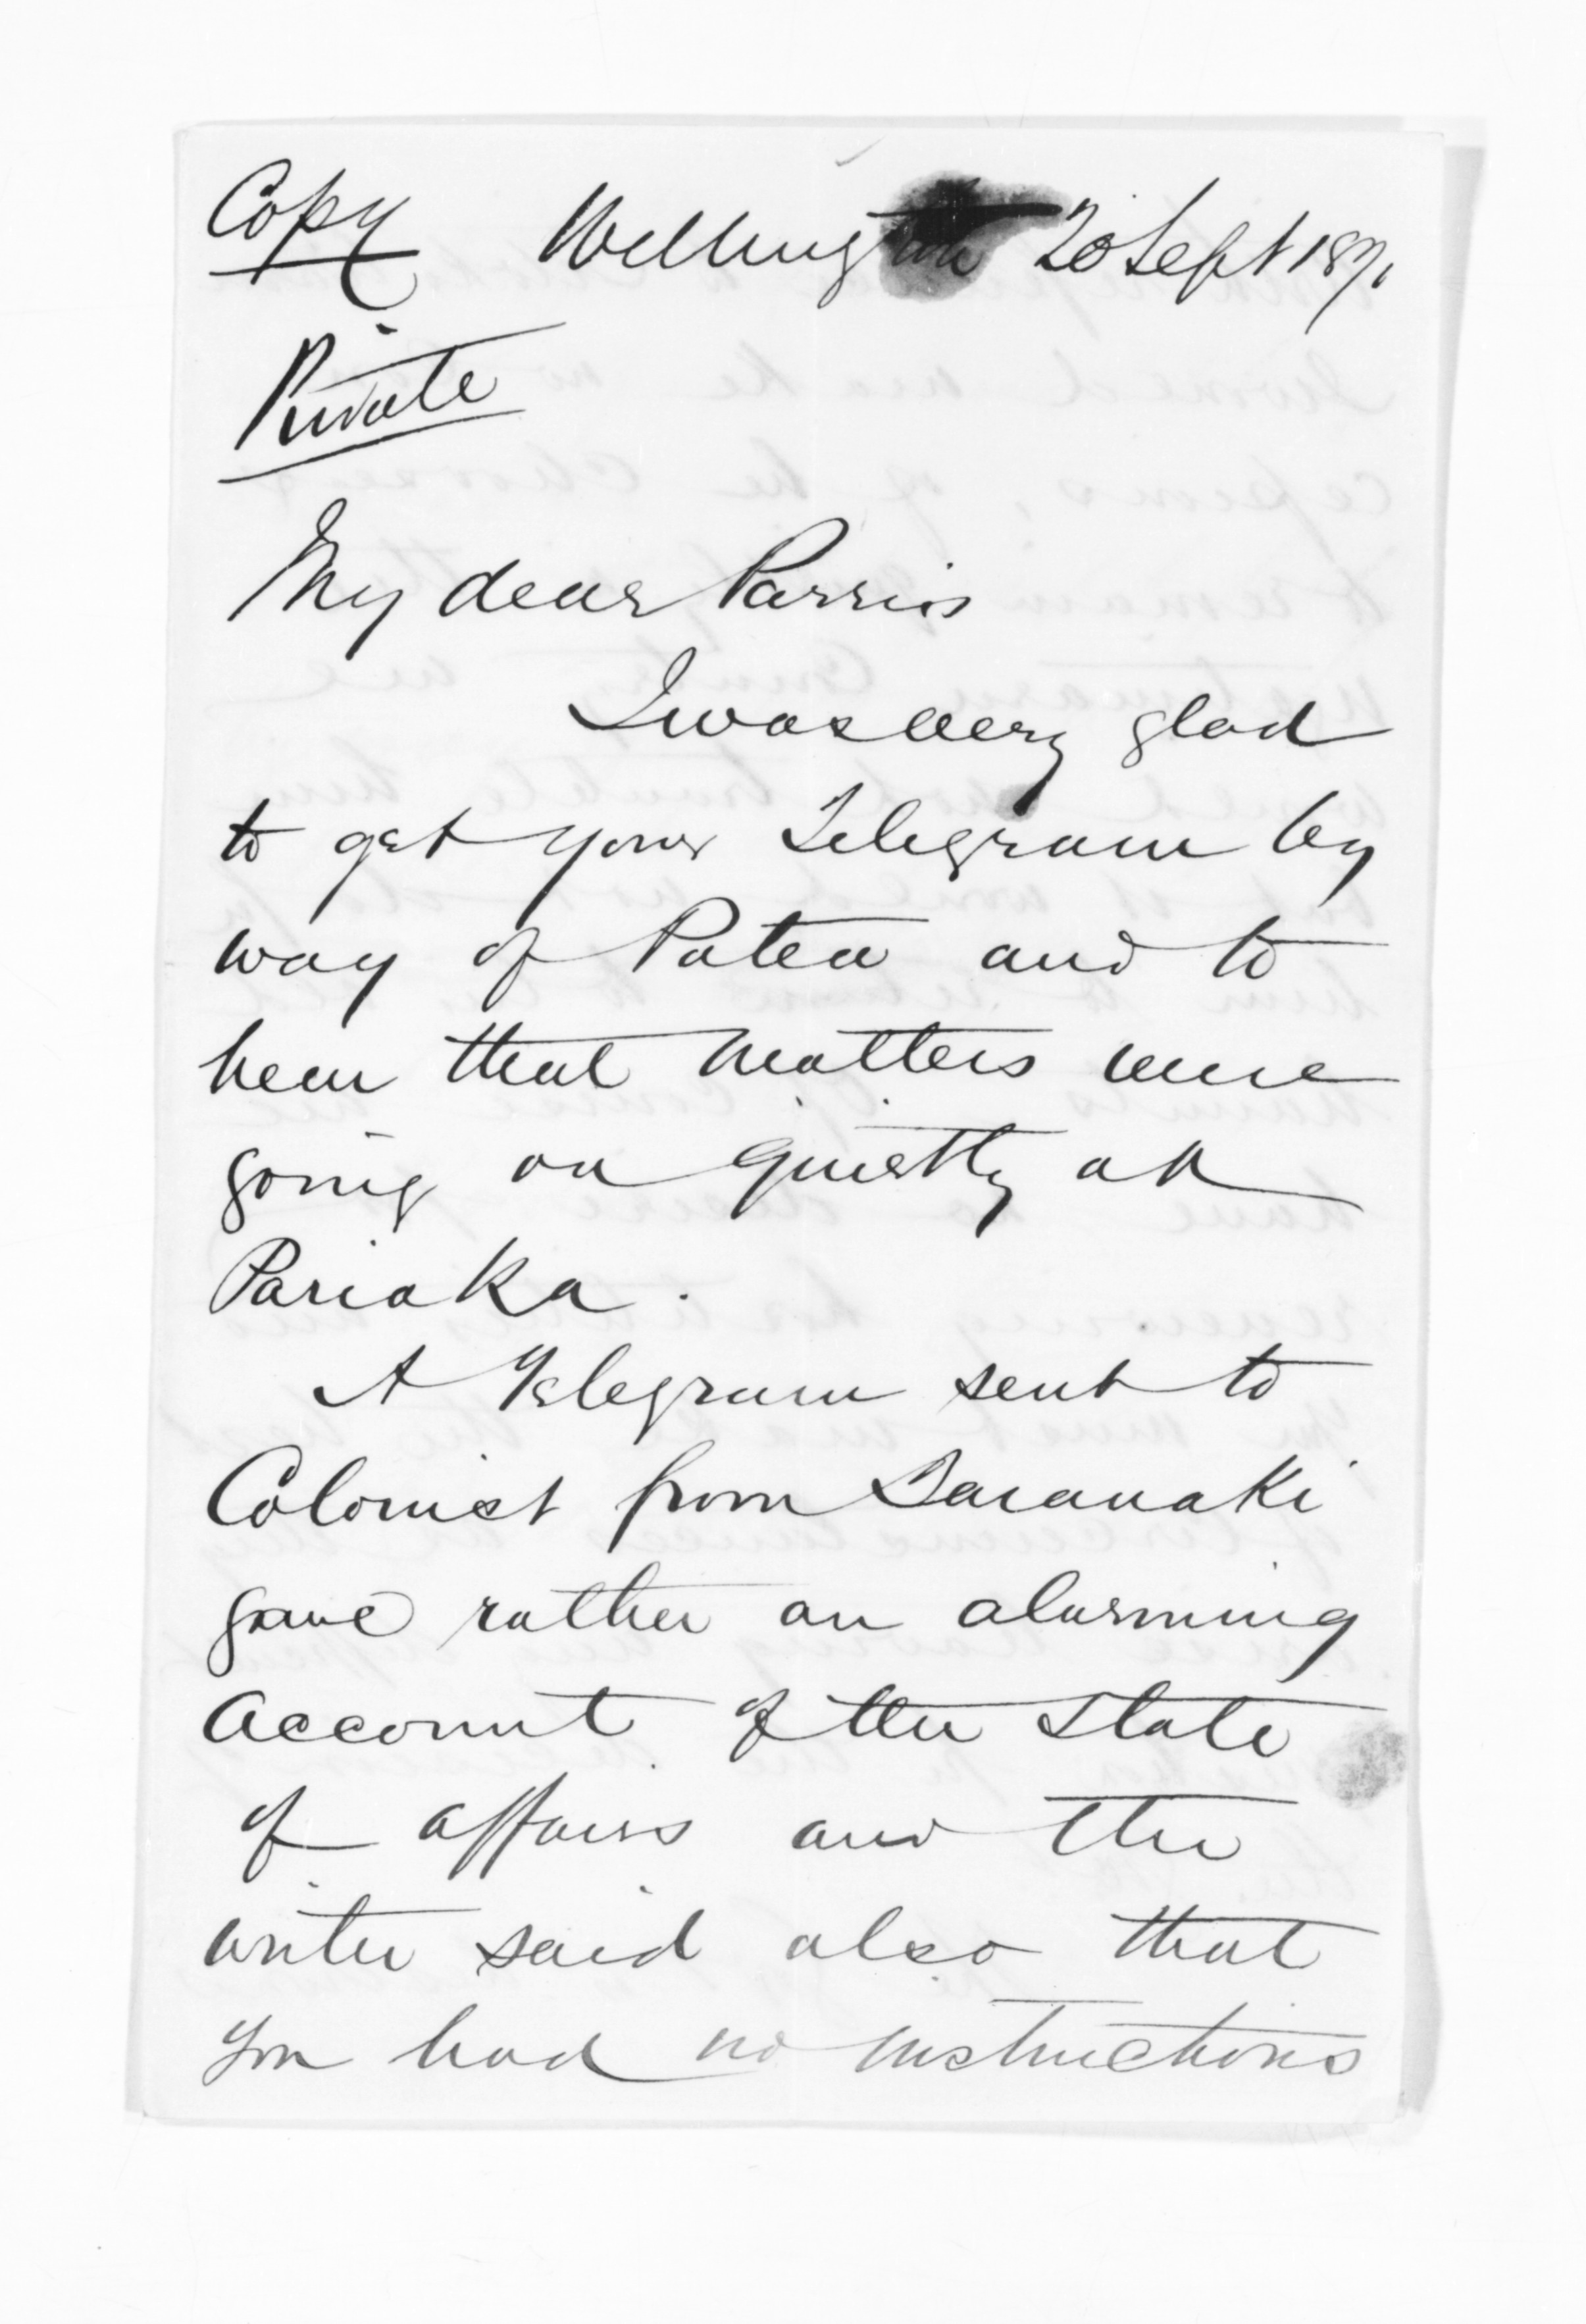 Copy Wellington 20 Sept 1871
Private
My dear Parris
I was very glad
to get your Telegram by
way of Patea and to
hear that matters were
going on quietly at
Pariaka.
A Telegram sent to
Colonist from Taranaki
gave rather an alarming
account of the state
of affairs and the
writer said also that
you had no instructions